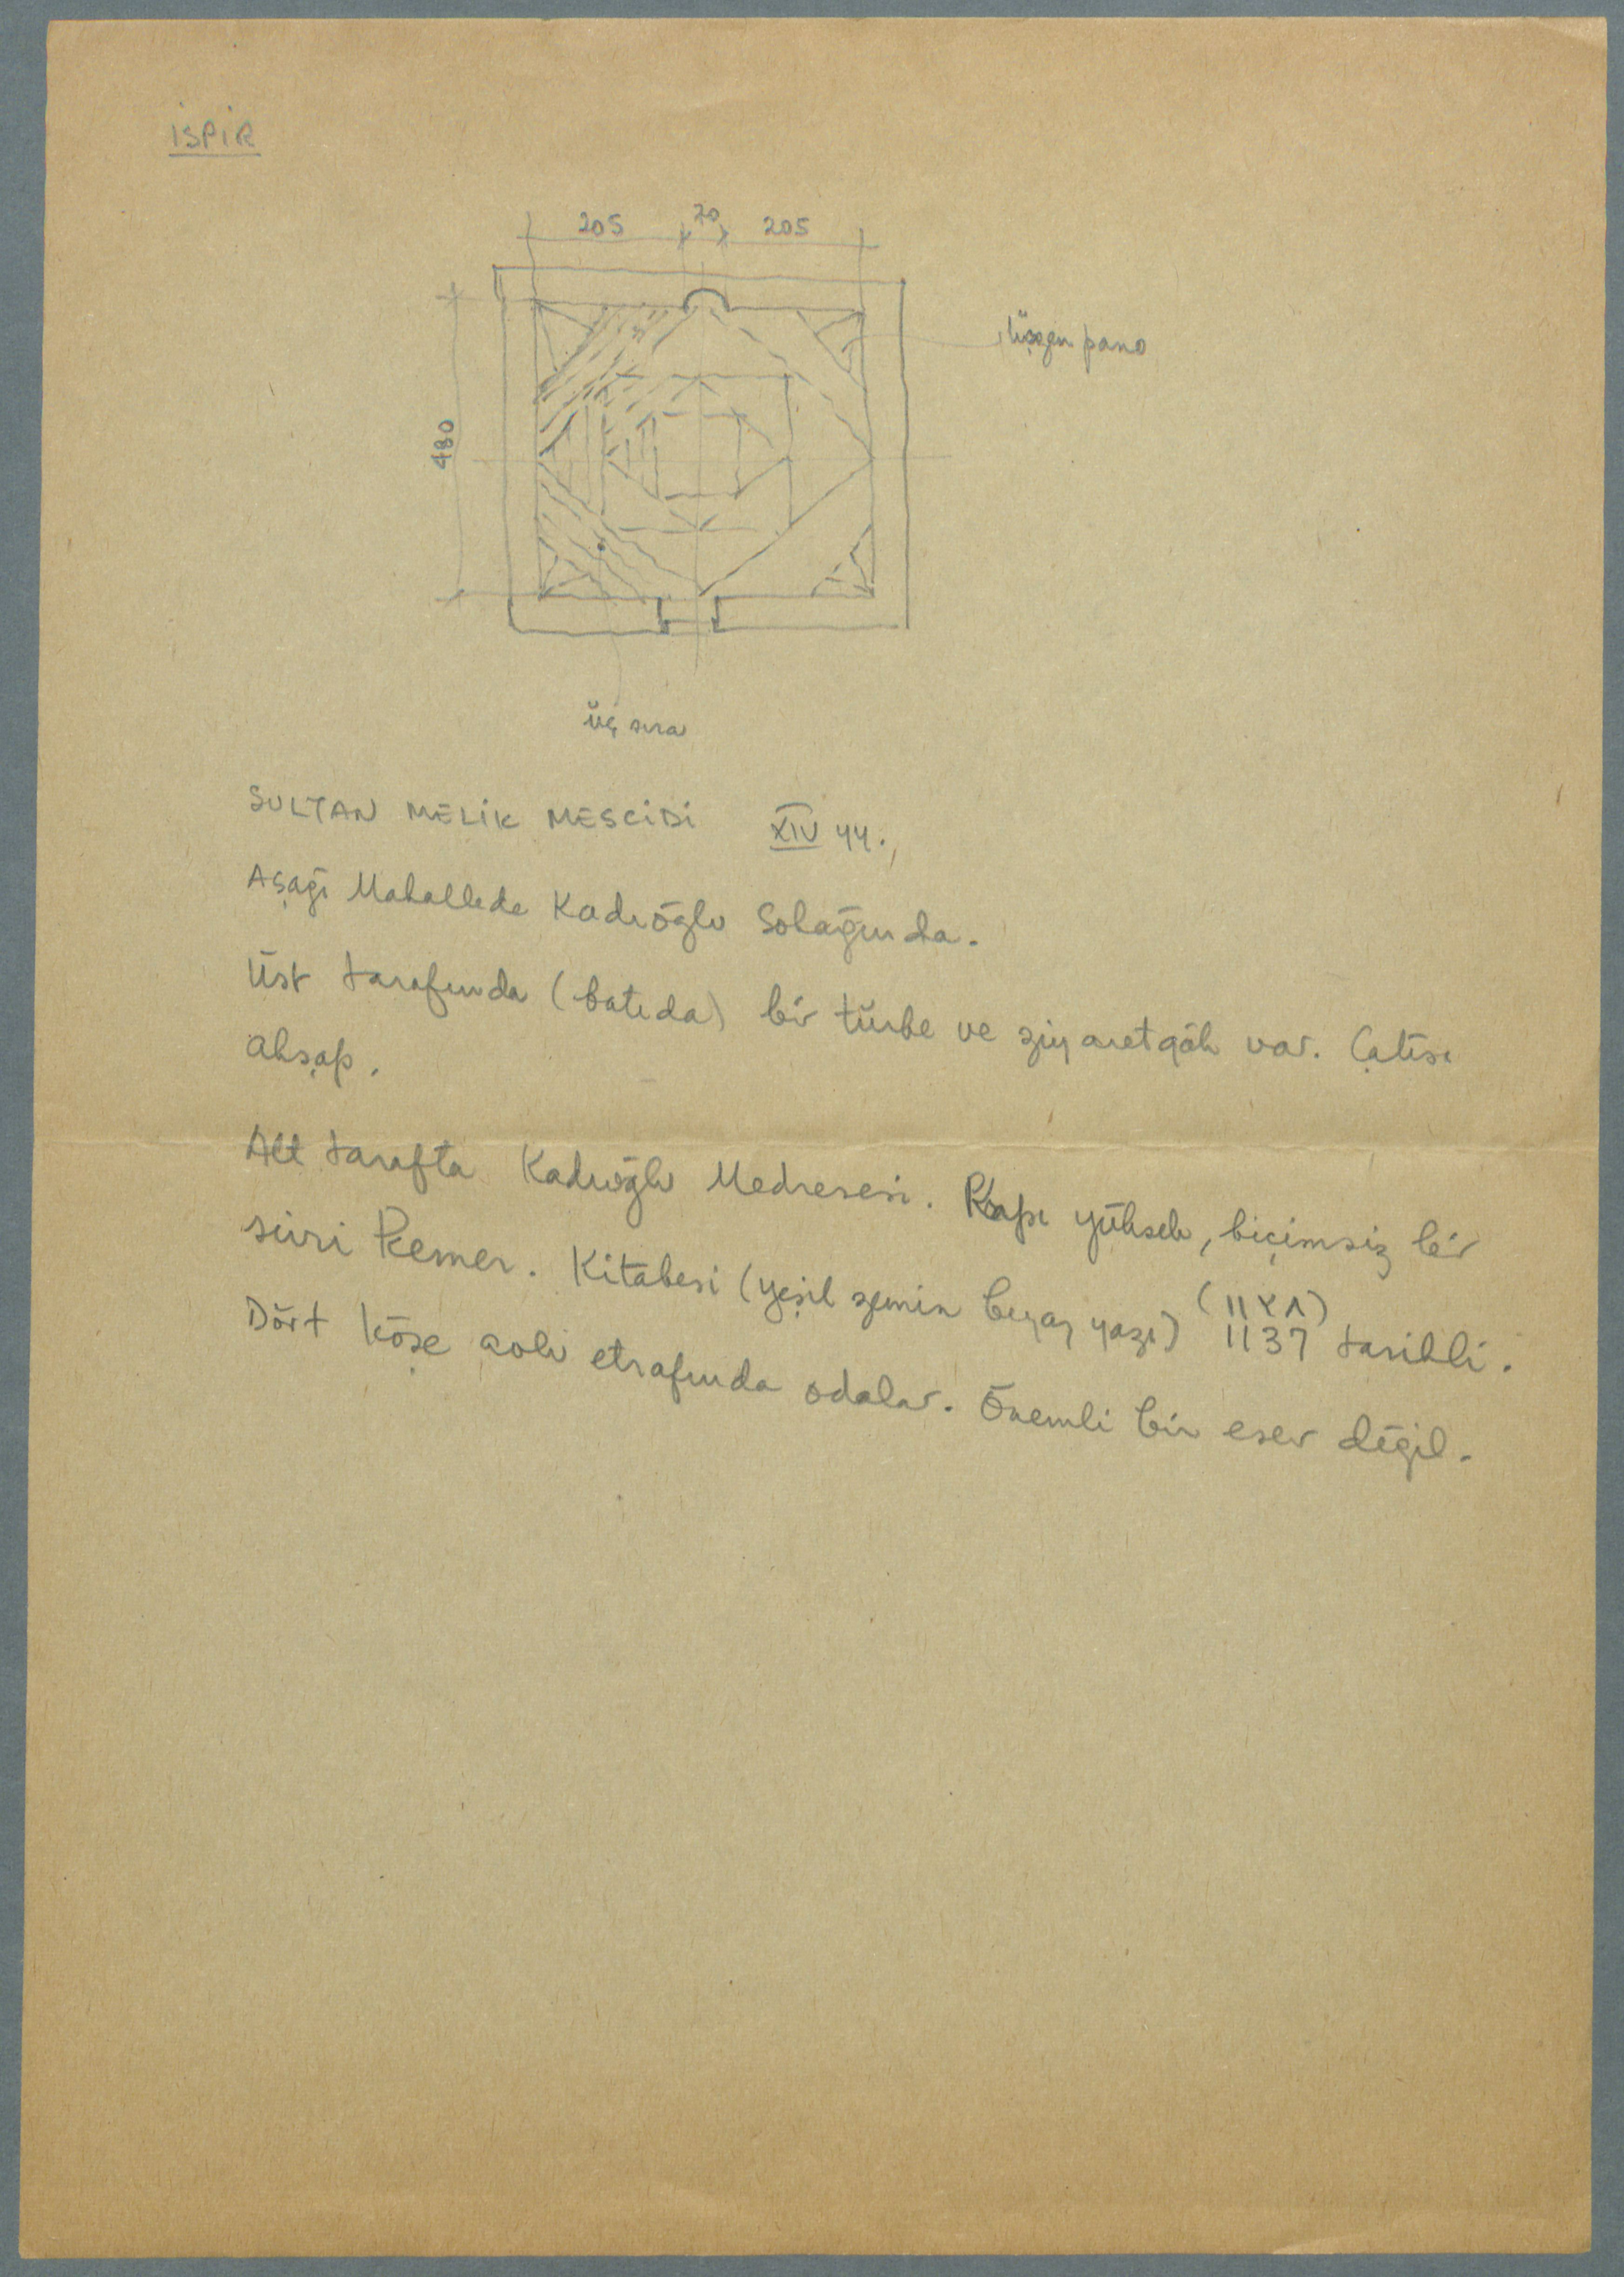 İSPİR
205 70 205
üçgen pano
480
üç sıra
SULTAN MELİK MESCİDİ XIV yy.
Aşağı Mahallede Kadıoğlu Sokağında.
Üst tarafında (batıda) bir türbe ve ziyaretgâh var. Çatısı
ahşap.
Alt tarafta Kadıoğlu Medresesi. Kapı yüksek, biçimsiz bir
sivri kemer. Kitabesi (yeşil zemin beyaz yazı) 1137 tarihli.
Dört köşe avlu etrafında odalar. Önemli bir eser değil.